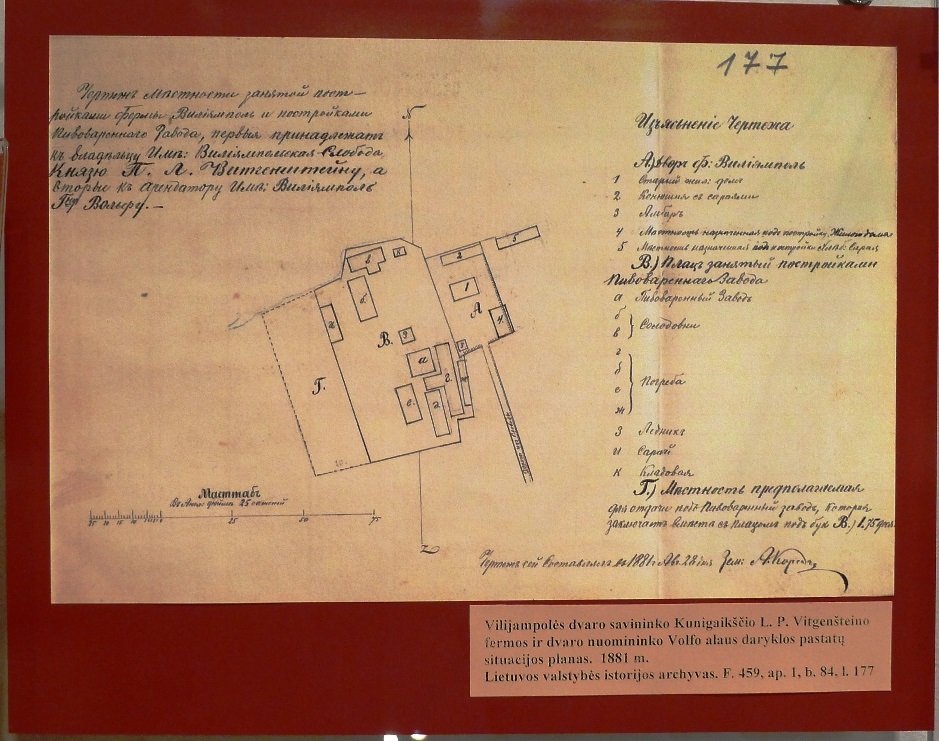 177
Чертежъ мѣстности занятой пост-
ройками фермы Вилiямполь и постройками
Пивовареннаго Завода, первыя принадлежатъ
къ владѣльцу Имѣ: Вилiямпольская Слобода,
Князю П. Л. Витгенштейну, а
вторые къ арендатору Имѣ: Вилiямполь
Вольфу. —
N
Изъясненiе Чертежа
А) дворъ ф: Вилiямполь
1 Старый жил: домъ
2 Конюшня съ сараями
3 Амбаръ
4 Мѣстность назначенная подъ постройку Жилого дома
5 Мѣстность назначенная под постройки Сарая
В.) Плацъ занятый постройками
Пивовареннаго Завода
а Пивоваренный Заводъ
б
в } Солодовни
г
д
е } Погреба
ж
З Ледникъ
и Сарай
к Кладовая
Г.) Мѣстность предполагаемая
для отдачи подъ Пивоваренный заводъ, которая
заключаетъ вмѣстѣ съ плацомъ подъ бук В.) 1,75 дес.
5
2
1
4
А
в
к
б
и
В.
З
а
г
е
д
Г.
Масштабъ
Въ Англ: дюймѣ 25 саженей
25 20 15 10 5 0 25 50 75
Чертежъ сей составленъ въ 1881 г Ав. 28 дня Зем:
Vilijampolės dvaro savininko Kunigaikščio L. P. Vitgenšteino
fermos ir dvaro nuomininko Volfo alaus daryklos pastatų
situacijos planas. 1881 m.
Lietuvos valstybės istorijos archyvas. F. 459, ap. 1, b. 84, l. 177